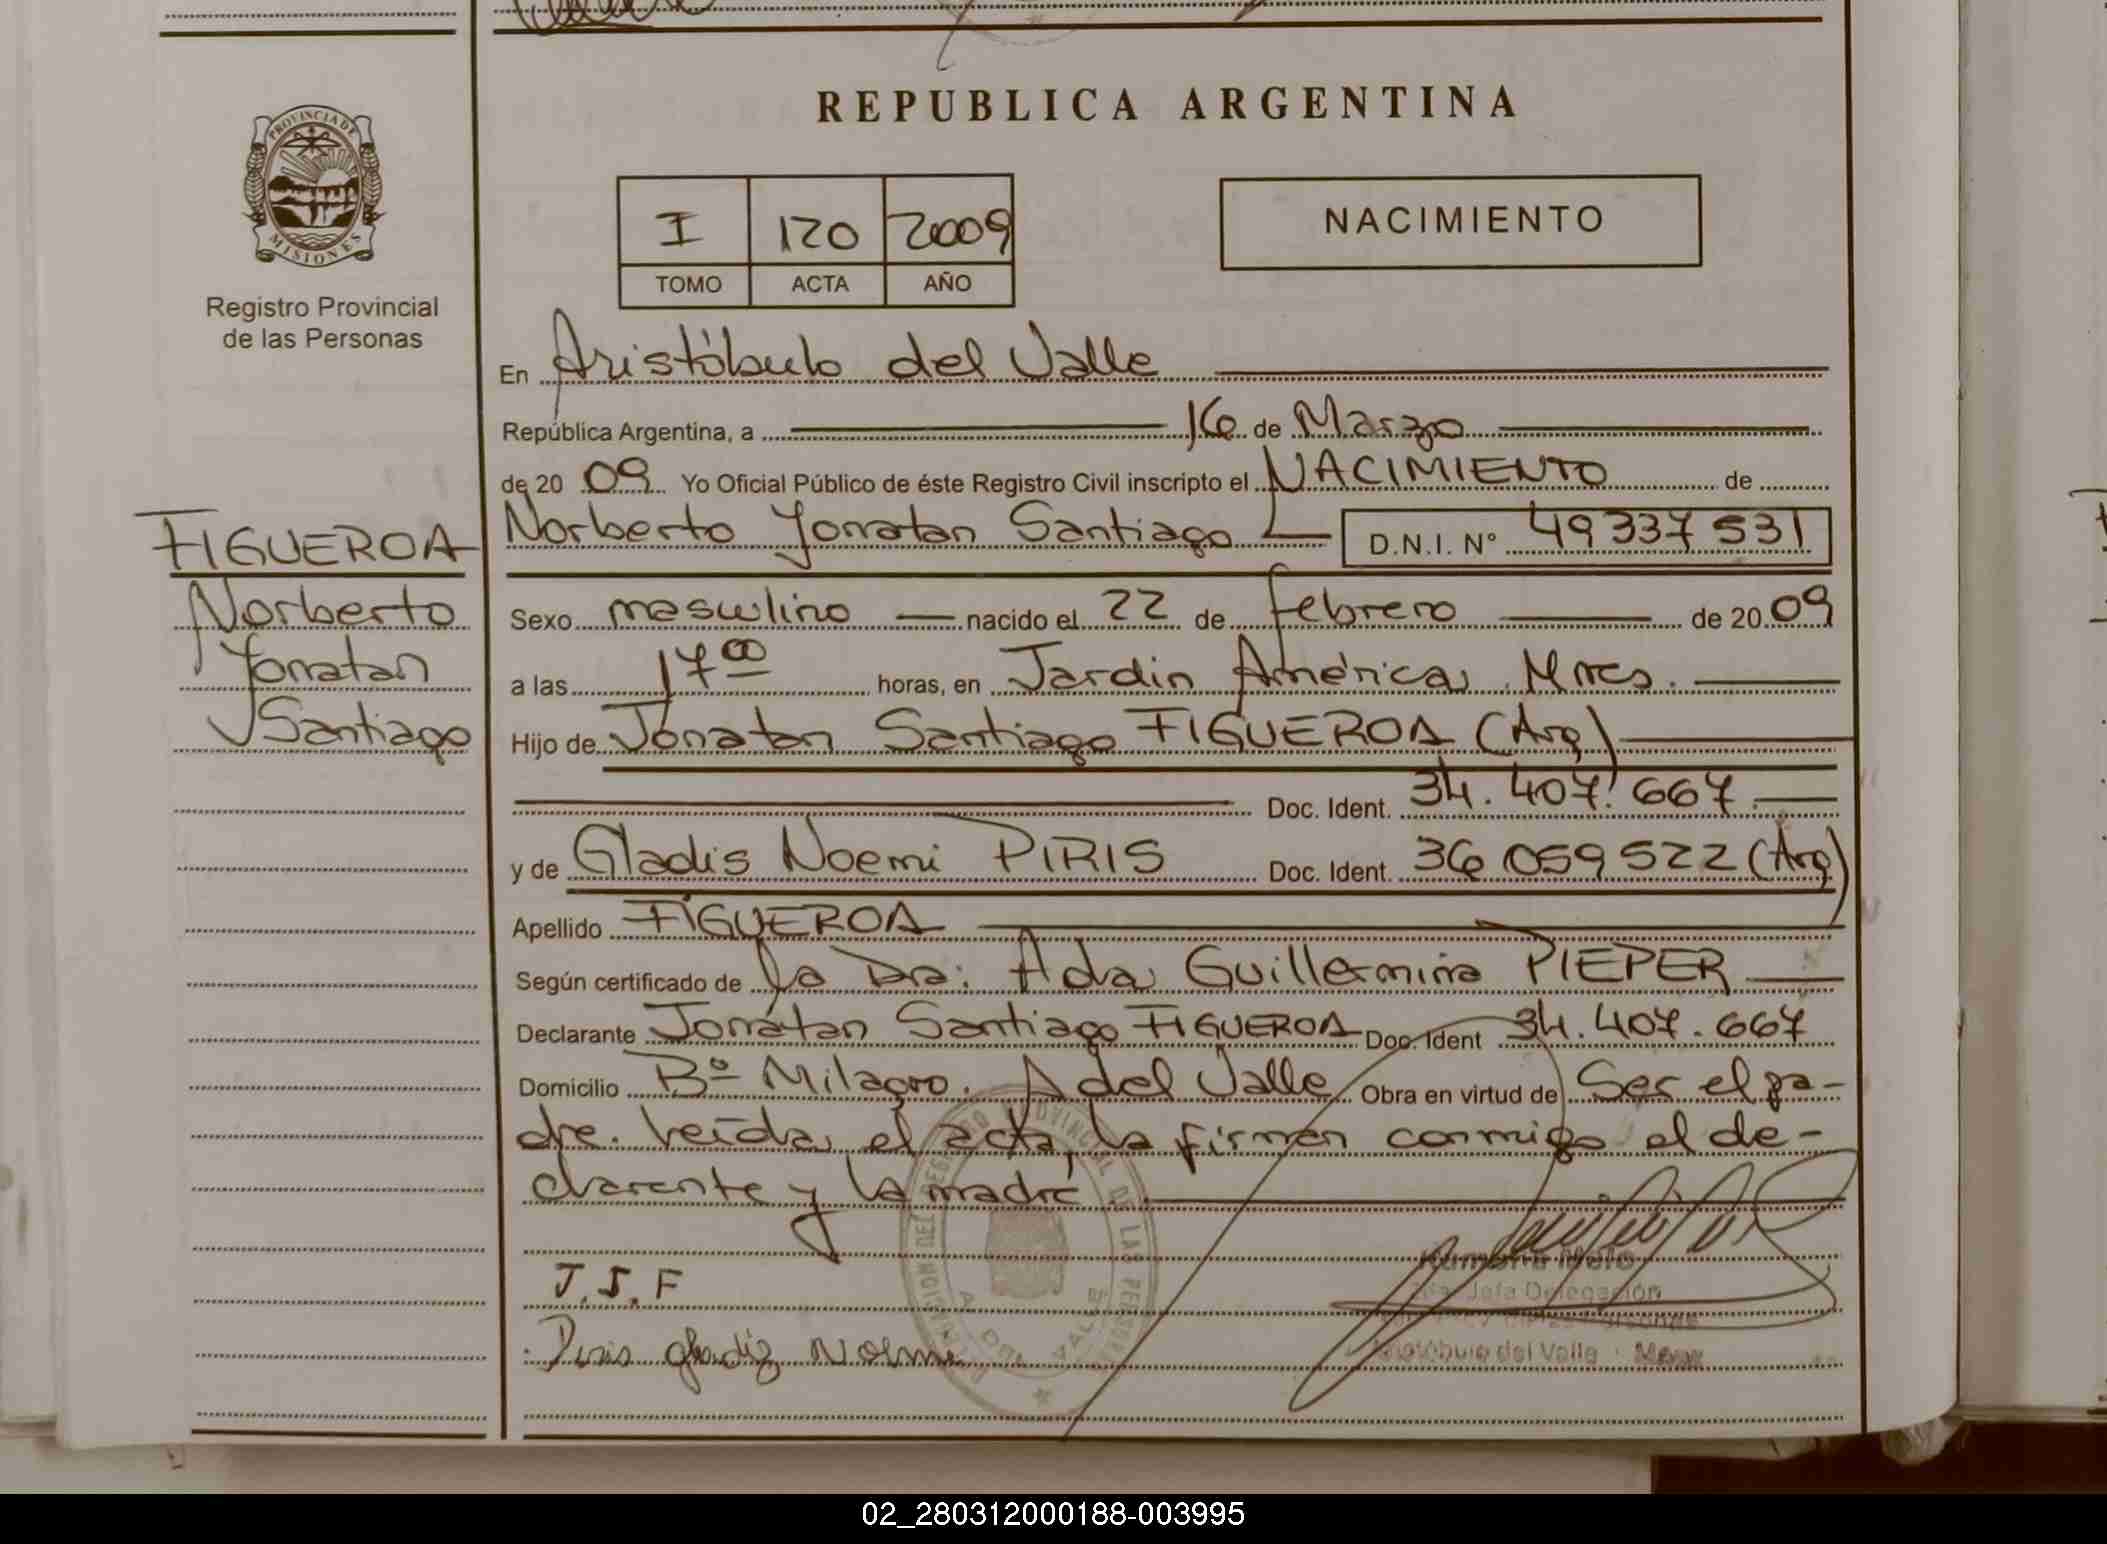 REPUBLICA ARGENTINA
PROVINCIA DE
MISIONES
Registro Provincial
de las Personas
I 120 2009
TOMO ACTA AÑO
NACIMIENTO
En Aristóbulo del Valle
República Argentina, a 16 de Marzo
de 20 09 Yo Oficial Público de éste Registro Civil inscripto el NACIMIENTO de
Norberto Yonatan Santiago D.N.I. N° 49337531
FIGUEROA
Norberto
Yonatan
Santiago
Sexo masculino nacido el 22 de febrero de 20 09
a las 17 00 horas, en Jardin América, Mnes.
Hijo de Jonatan Santiago FIGUEROA (Arg)
Doc. Ident. 34.407.667
y de Gladis Noemi PIRIS Doc. Ident. 36 059 522 (Arg)
Apellido FIGUEROA
Según certificado de la Dra. Ada Guillermina PIEPER
Declarante Jonatan Santiago FIGUEROA Doc. Ident 34.407.667
Domicilio Bº Milagro. A del Valle Obra en virtud de Ser el pa-
dre. Leída el acta, la firman conmigo el de-
clarante y la madre
J.S.F
Piris gladiz Noemi
Jefa Delegación
Aristóbulo del Valle
02_280312000188-003995